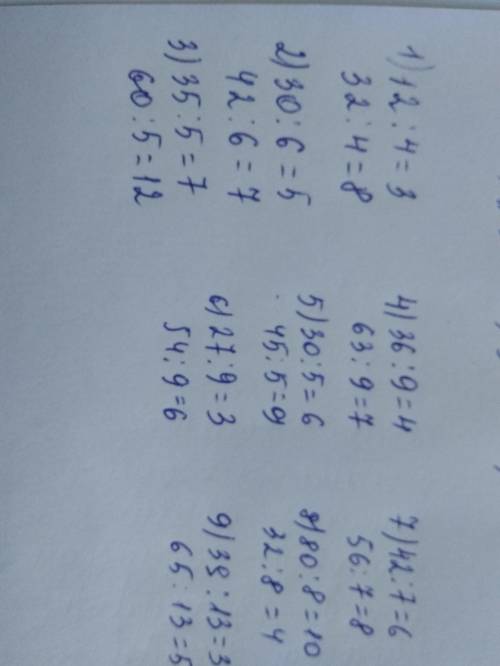 1) 12:4=3
32:4=8
2) 30:6=5
42:6=7
3) 35:5=7
60:5=12
4) 36:9=4
63:9=7
5) 30:5=6
45:5=9
6) 27:9=3
54:9=6
7) 42:7=6
56:7=8
8) 80:8=10
32:8=4
9) 39:13=3
65:13=5